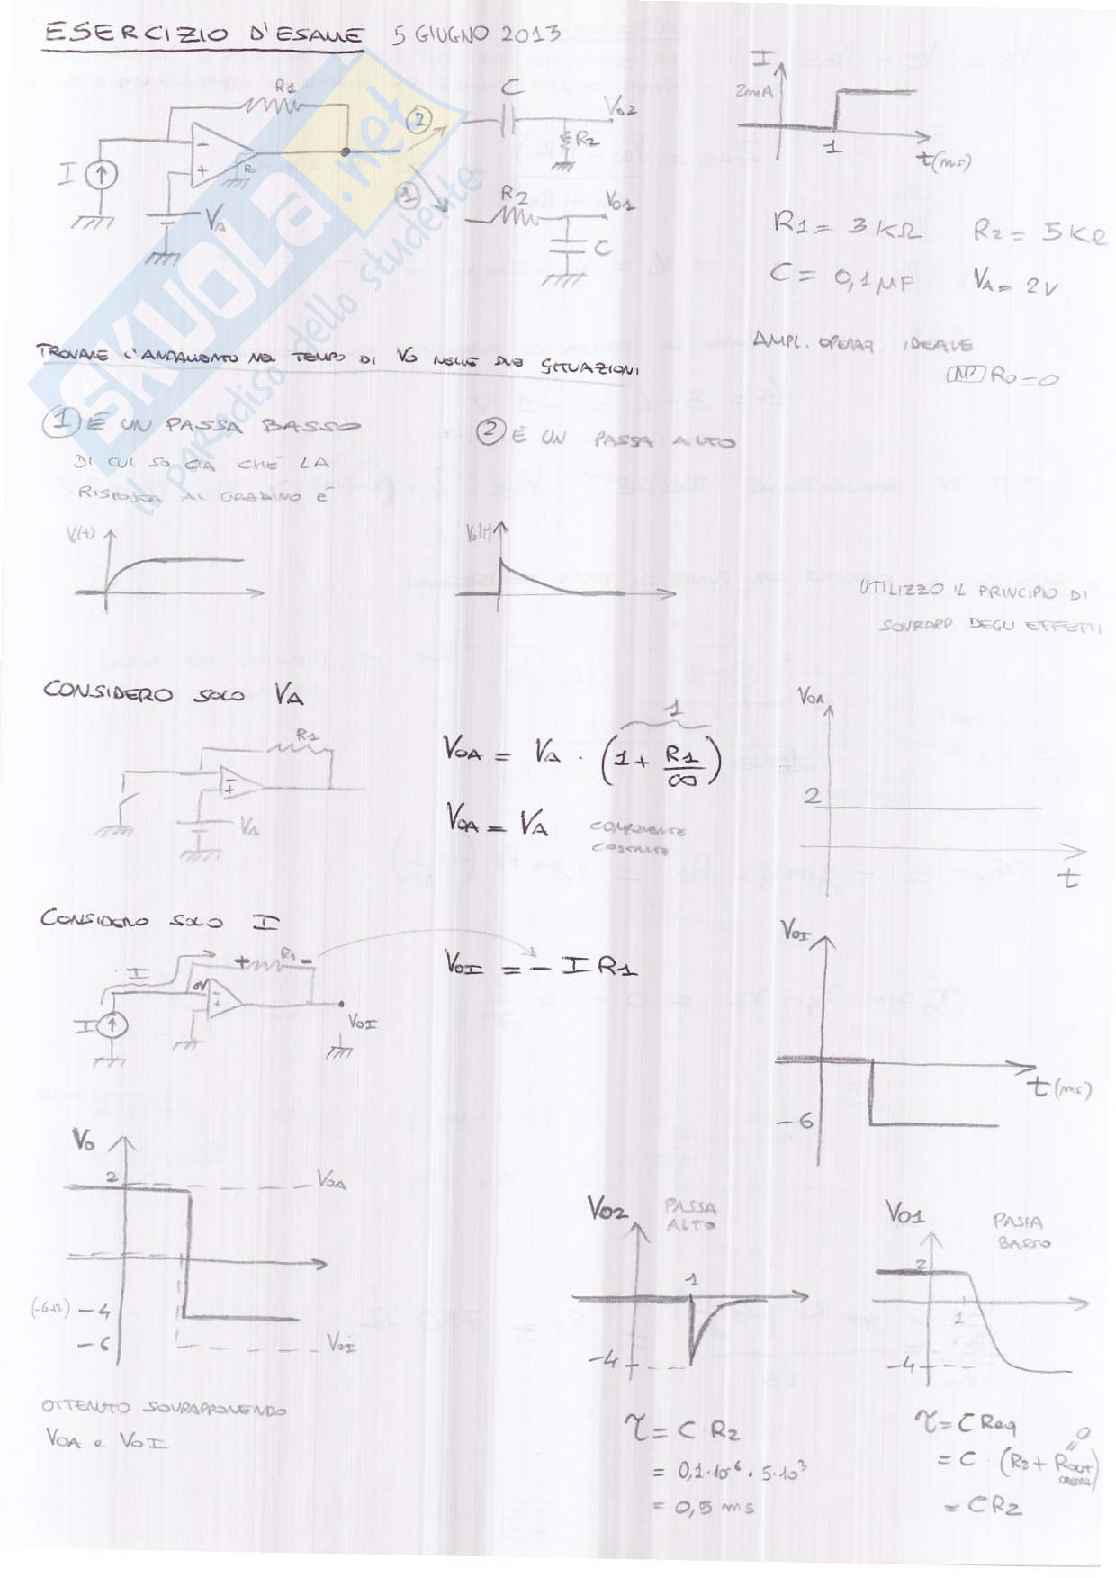 ESERCIZIO D'ESAME 5 GIUGNO 2013
R1
I
VA
Ro
2
C
Vo2
R2
1
R2
Vo1
C
I
2mA
1
t(ms)
R1 = 3 KΩ R2 = 5 KΩ
C = 0,1 μF VA = 2 V
AMPL. OPERAZ. IDEALE
Ro = 0
TROVARE L'ANDAMENTO NEL TEMPO DI VO NELLE DUE SITUAZIONI
1 È UN PASSA BASSO
DI CUI SO GIA CHE LA
RISPOSTA AL GRADINO È
2 È UN PASSA ALTO
V(t)
Vo(t)
UTILIZZO IL PRINCIPIO DI
SOVRAPP DEGLI EFFETTI
CONSIDERO SOLO VA
R1
VA
VOA = VA · (1 + R1/∞)
1
VOA = VA COMPONENTE
COSTANTE
VOA
2
t
CONSIDERO SOLO I
I
+ R1 -
0V
I
VOI
VOI = - I R1
VOI
t (ms)
-6
Vo
2
VOA
(-6+2) -4
-6
VOI
OTTENUTO SOVRAPPONENDO
VOA e VOI
Vo2 PASSA
ALTO
1
-4
τ = C R2
= 0,1·10⁻⁶ · 5·10³
= 0,5 ms
Vo1 PASSA
BASSO
2
1
-4
τ = C Req
= C · (R2 + ROUT)
0
= C R2
SKUOLA.net
il paradiso dello studente